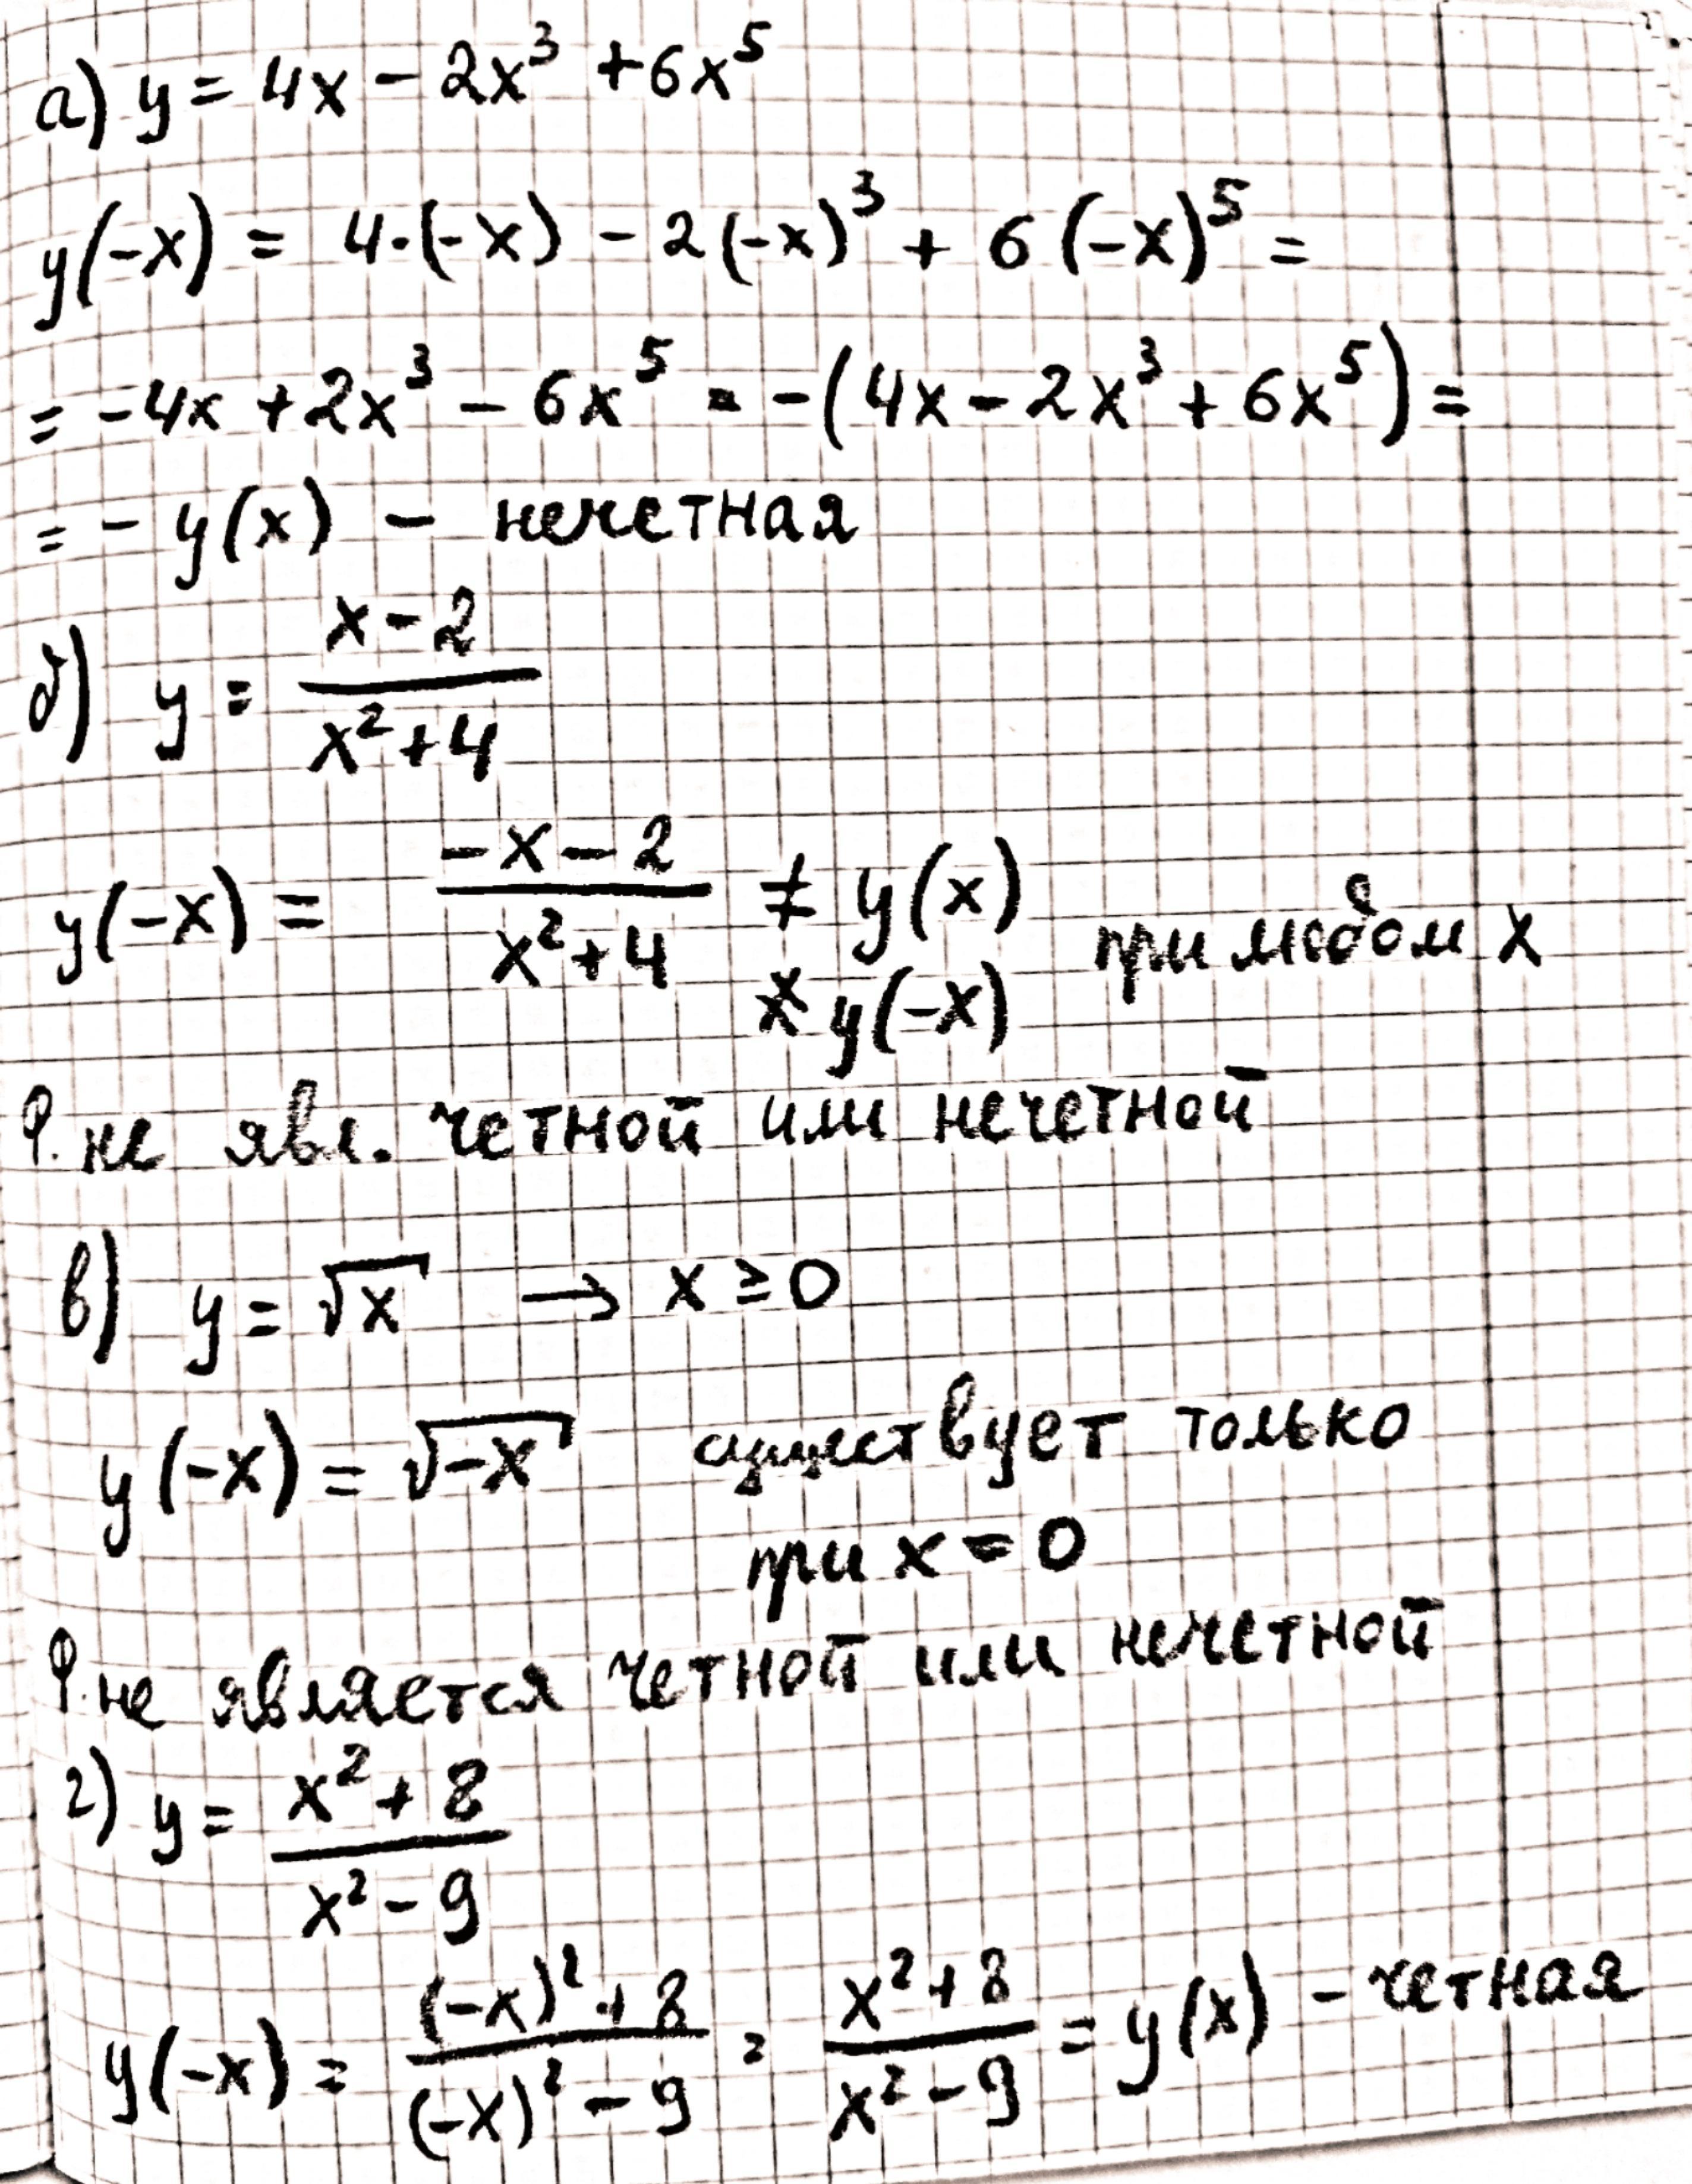 а) y = 4x - 2x³ + 6x⁵
y(-x) = 4·(-x) - 2(-x)³ + 6(-x)⁵ =
= -4x + 2x³ - 6x⁵ = -(4x - 2x³ + 6x⁵) =
= - y(x) - нечетная
б) y = (x - 2)/(x² + 4)
y(-x) = (-x - 2)/(x² + 4) ≠ y(x) при любом x
≠ y(-x)
Ф. не явл. четной или нечетной
в) y = √x → x ≥ 0
y(-x) = √-x существует только
при x = 0
Ф. не является четной или нечетной
г) y = (x² + 8)/(x² - 9)
y(-x) = ((-x)² + 8)/((-x)² - 9) = (x² + 8)/(x² - 9) = y(x) - четная